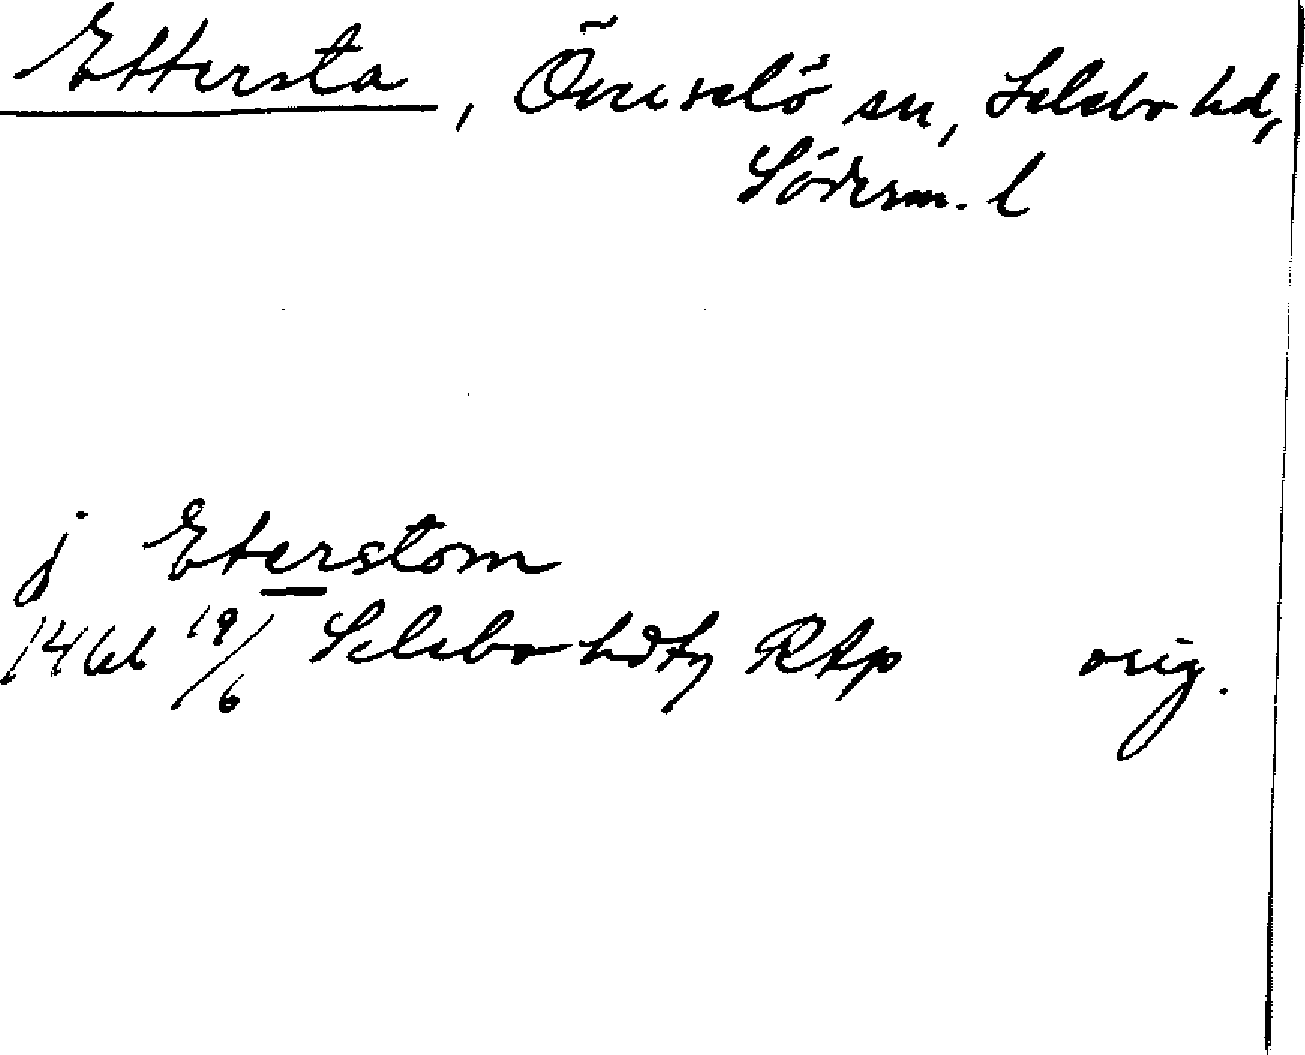 Ettersta, Överselö sn, Selebo hd,
Söderm. l
j Eterstom
1466 19/6 Selebo hdtg RAp orig.